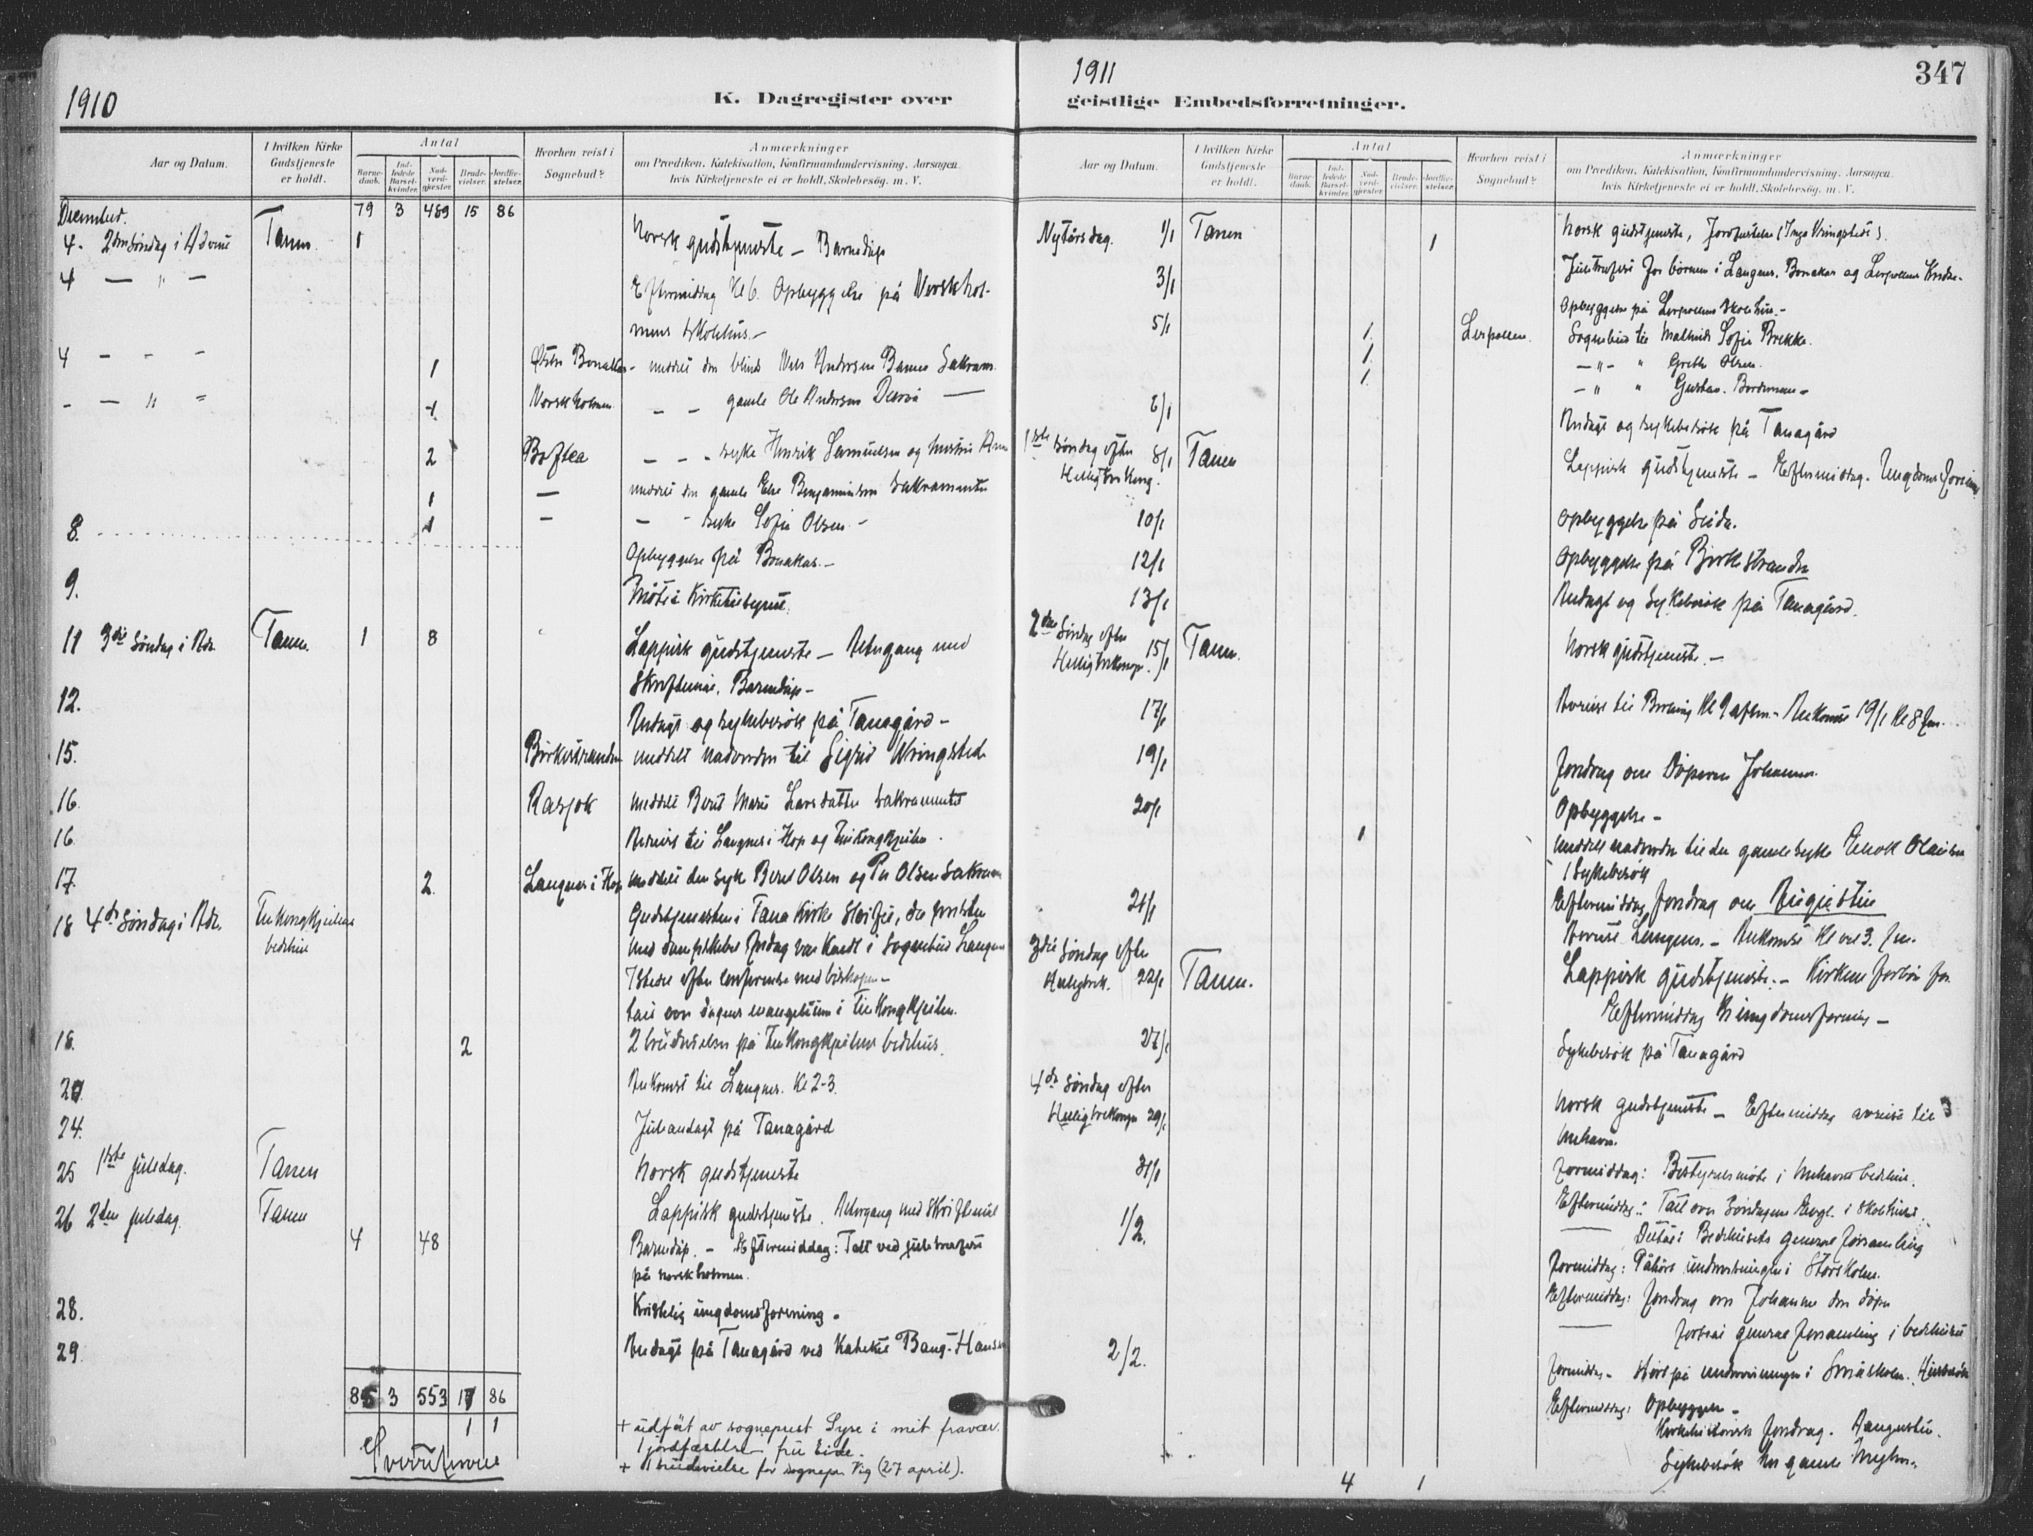 1910
K. Dagregister over
Aar og Datum.
I hvilken Kirke Gudstjeneste er holdt.
Antal
Barne-daab.
Ind-ledede Barsel-kvinder.
Nad-verd-gjester.
Brude-vielser.
Jordfæ-stelser.
Hvorhen reist i Sognebud?
Anmærkninger
om Prædiken, Katekisation, Konfirmandundervisning, Aarsagen,
hvis Kirketjeneste ei er holdt, Skolebesøg. m. V.
December. 79 3 489 15 86
4. 2den Søndag i Advent Tanen 1 Norsk gudstjeneste – Barnedåp
4 — " — Eftermiddag Kl 6. Opbyggelse på Norskhol-
mens skolehus –
4 - - - 1 Østre Bonakas - meddelt den blinde Nils Andersen Banes Sakram.
- — " = 1 Norskholmen — - gamle Ole Andersen —
2 Boftsa — - - syke Henrik Samuelsen og hustru
1 — meddelt den gamle Else Benjaminsen Sakramentet
8. 1 — — - syke Sofie Olsen –
Opbyggelse på Bonakas. –
9. Møte i Kirketilsynet.
11 3die Søndag i Adv. Tanen. 1 8 Lappisk gudstjeneste – Altergang med
Skriftemål. Barnedåp –
12. Andagt og sykebesøk på Tanagård –
15. Birkestranden meddelt nadverden til Sigrid Wringsted
16. Rasjok meddelt Berit Marie Larsdatter sakramentet
16 Avreise til Langnes i Hop og Finkongkjeilen.
17 2. Langnes i Hop meddelt den syke Beret Olsen og Per Olsen Sakram
18 4de Søndag i Adv. Finkongkjeilens bedehus Gudstjenesten i Tana Kirke sløifet, da presten
med dampskibet fredag var kaldt i Sognebud Langnes
reiste efter konferense med biskopen –
tale over dagens evangelium i Finkongkjeilen.
18. 2 2 brudevielser på Finkongkjeilens bedehus.
20. Ankomst til Langnes. Kl 2-3.
24. Juleandagt på Tanagård
25 1ste juledag. Tanen Norsk gudstjeneste
26 2den juledag. Tanen Lappisk gudstjeneste. Altergang med Skriftemål
4 48 Barnedåp. – Eftermiddag: Talt ved juletræfest
på norskholmen.
28. Kristelig ungdomsforening.
29. Andagt på Tanagård ved Kateket Bang-Hansen
85 3 553 17 86
1 1
+ utført av sogneprest Syse i mit fravær.
1 jordfæstelse fru Eide.
+ 1 brudevielse for sognepr. Vig (27 april).
1911
347
geistlige Embedsforretninger.
Aar og Datum.
I hvilken Kirke Gudstjeneste er holdt.
Antal
Barne-daab.
Ind-ledede Barsel-kvinder.
Nad-verd-gjester.
Brude-vielser.
Jordfæ-stelser.
Hvorhen reist i Sognebud?
Anmærkninger
om Prædiken, Katekisation, Konfirmandundervisning, Aarsagen,
hvis Kirketjeneste ei er holdt, Skolebesøg. m. V.
Nytårsdag. 1/1 Tanen 1 Norsk gudstjeneste, Jordfæstelse (Inga Wringsted).
3/1 Juletræfest for børnene i Langnes, Bonakas og Leirpollens Kreds. –
Opbyggelse på Leirpollens Skolehus. –
5/1 1. Leirpollen. Sognebud til Mathilde Sofie Brekke.
1. — " - " Grethe Olsen.
1. — " " Gustav Bordsman –
6/1 Andagt og sykebesøk på Tanagård
1ste Søndag efter Helligtrekong. 8/1 Tanen Lappisk gudstjeneste – Eftermiddag. Ungdomsforening
10/1 Opbyggelse på Seida.
12/1 Opbyggelse på Birkestranden
13/1 Andagt og Sykebesøk på Tanagård.
2den Søndag efter Helligtrekonger. 15/1 Tanen. Norsk gudstjeneste. –
17/1 Avreise til Kl 9 aften – Ankomst 19/1 Kl 8 fm.
19/1 Foredrag om Døperen Johannes.
20/1 Opbyggelse –
1 meddelt nadverden til den gamle syke Enok Olausen
1 Sykebesøk
21/1 Eftermiddag foredrag om Augustin
Avreise Langnes. – Ankomst Kl vel 3. fm.
3die Søndag efter Helligtrek. 22/1 Tanen. Lappisk gudstjeneste. – Kirkens forbøn for
Eftermiddag Ungdomsforening –
27/1 Sykebesøk på Tanagård
4de Søndag efter Helligtrekonger 29/1 Norsk gudstjeneste – Eftermiddag avreise til
Mehavn.
31/1 Formiddag: Bestyrelsesmøte i Mehavns bedehus.
Eftermiddag: Talt over Søndagens Evgl. i skolehuset
1/2. — Deltat i Bedehusets generalforsamling
Formiddag: Påhørt undervisningen i Storskolen.
Eftermiddag: foredrag om Johannes den døper
— fortsat generalforsamling i bedehuset
2/2. Formiddag – Hørt på undervisningen i Småskolen. Husbesøk
Eftermiddag: Opbyggelse –
Kirkehistorisk foredrag. Augustin.
Sykebesøk hos gamle
4 1